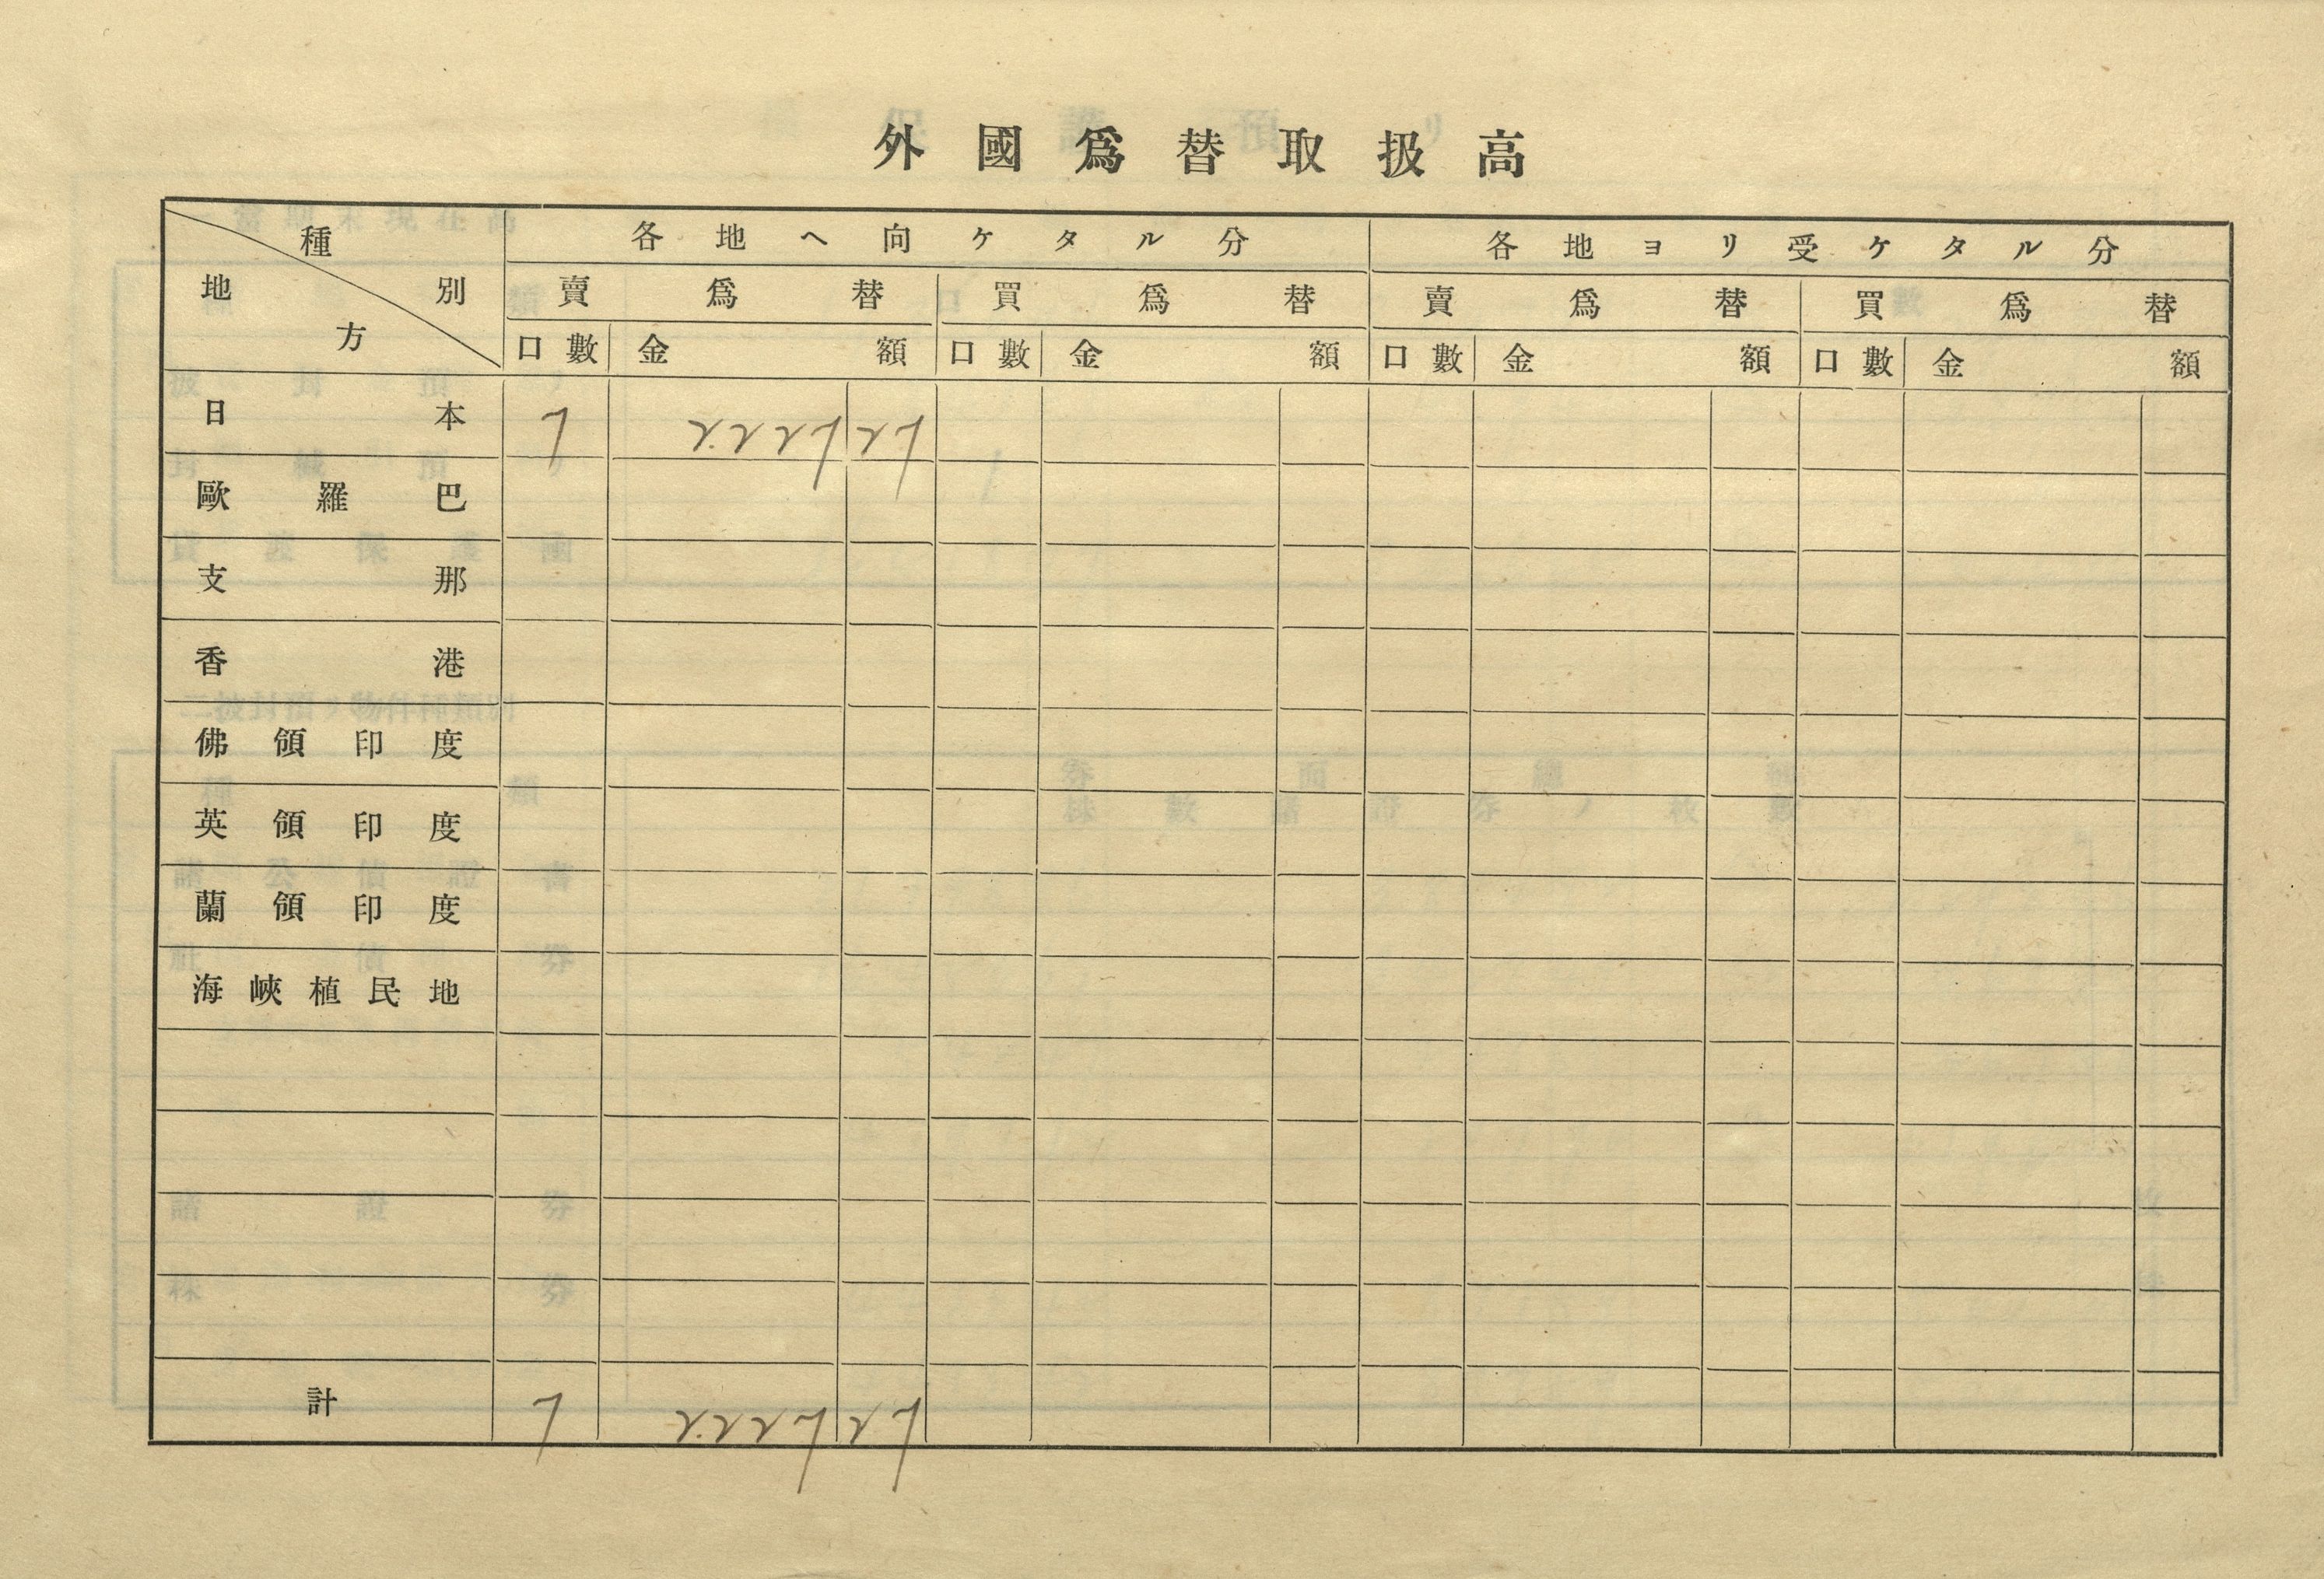 外國爲替取扱高
種別
地方
各地ヘ向ケタル分
各地ヨリ受ケタル分
賣爲替
買爲替
賣爲替
買爲替
口數
金額
口數
金額
口數
金額
口數
金額
日本
7
歐羅巴
支那
香港
佛領印度
英領印度
蘭領印度
海峽植民地
計
7